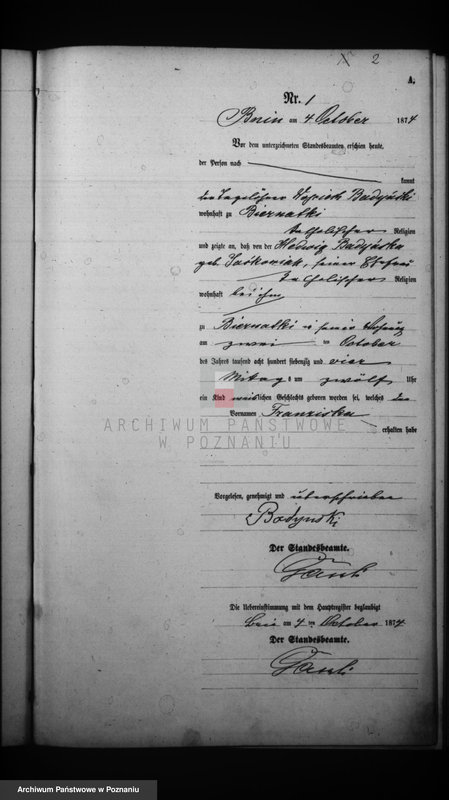 2
A.
Nr. 1
Bnin am 4 October 1874
Vor dem unterzeichneten Standesbeamten erschien heute,
der Person nach
kannt
der Tagelöhner Badyński
wohnhaft zu Biernatki
katholischer Religion
und zeigte an, daß von der Hedwig Badyńska
geb. seiner Ehefrau
katholischer Religion
wohnhaft bei ihm
zu Biernatki in seiner Wohnung
am zwei ten October
des Jahres tausend acht hundert siebenzig und vier
Mittag s um zwölf Uhr
ein Kind weiblichen Geschlechts geboren worden sei, welches den
Vornamen Franziska
erhalten habe
ARCHIWUM PAŃSTWOWE
W POZNANIU
Vorgelesen, genehmigt und unterschrieben
Badynski
Der Standesbeamte.
Die Uebereinstimmung mit dem Hauptregister beglaubigt
Bnin am 4 ten October 1874
Der Standesbeamte.
Archiwum Państwowe w Poznaniu